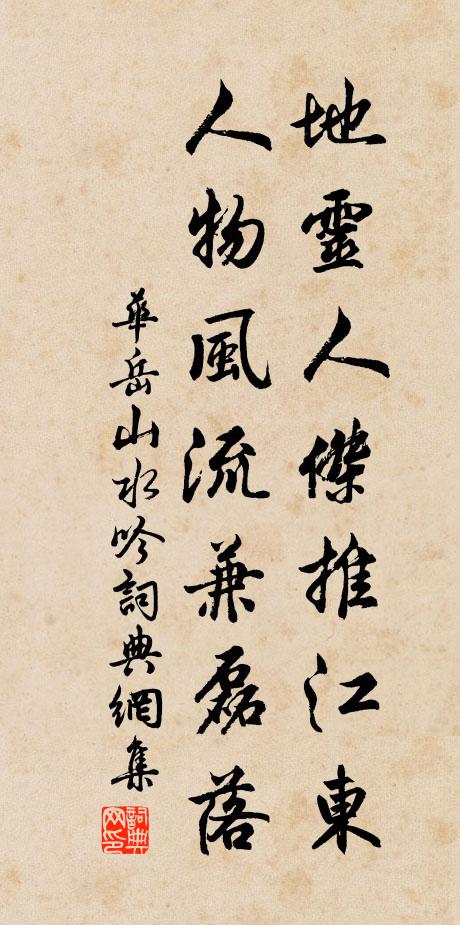 地靈人傑推江東
人物風流兼磊落
華岳山水吟詞典網集
詞典網印